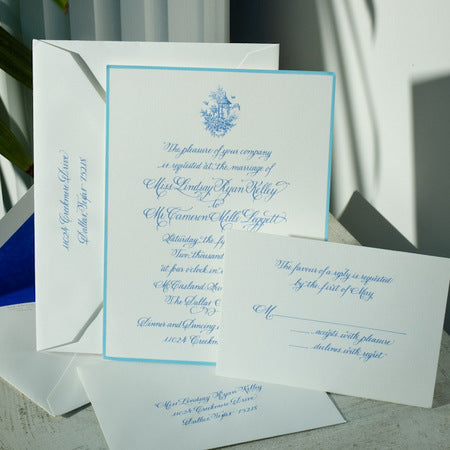 The pleasure of your company
is requested at the marriage of
Miss Lindsay Ryan Kelley
to
Mr Cameron Mills Leggett
Saturday, the
Two thousand
at four o'clock in
McCasland
The Dallas
Dinner and Dancing
11024
11024 Creekmere Drive
Dallas, Texas 75218
The favour of a reply is requested
by the first of May.
M
accepts with pleasure
declines with regret
Miss Lindsay Ryan Kelley
11024 Creekmere Drive
Dallas, Texas 75218